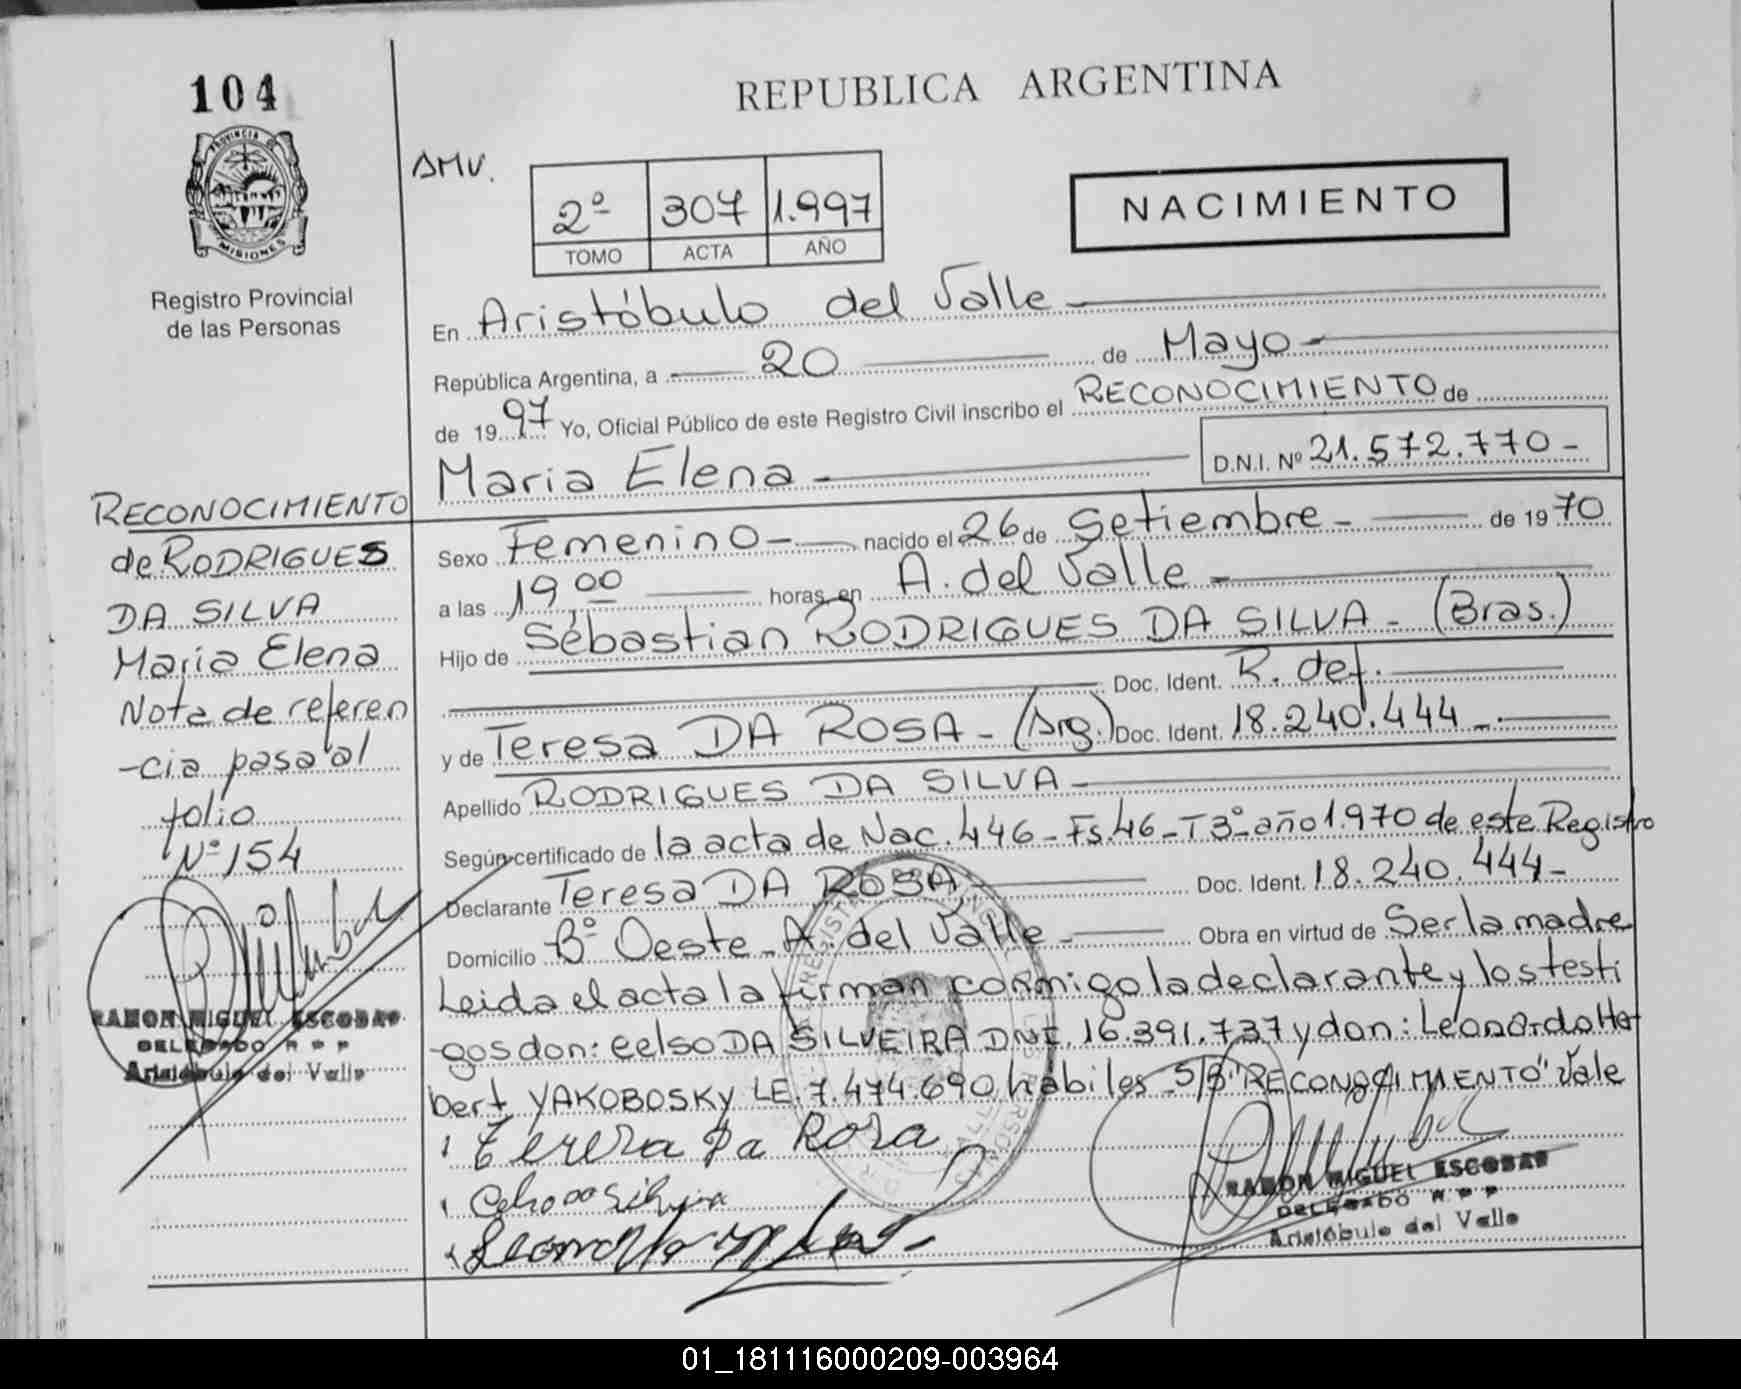 104
REPUBLICA ARGENTINA
PROVINCIA DE
MISIONES
Registro Provincial
de las Personas
SMV.
2º 307 1.997
TOMO ACTA AÑO
NACIMIENTO
En Aristóbulo del Valle
República Argentina, a 20 de Mayo
de 1997 Yo, Oficial Público de este Registro Civil inscribo el RECONOCIMIENTO de
Maria Elena D.N.I. Nº 21.572.770-
Sexo Femenino nacido el 26 de Setiembre de 1970
a las 19,00 horas, en A. del Valle
Hijo de Sebastian RODRIGUES DA SILVA - (Bras.)
Doc. Ident. R. def.
y de Teresa DA ROSA - (Arg.) Doc. Ident. 18.240.444
Apellido RODRIGUES DA SILVA
Según certificado de la acta de Nac. 446 - Fs. 46 - T 3º año 1.970 de este Registro
Declarante Teresa DA ROSA Doc. Ident. 18.240.444-
Domicilio Bº Oeste - A. del Valle Obra en virtud de Ser la madre
Leida el acta la firman conmigo la declarante y los testi
-gos don: Celso DA SILVEIRA DNI. 16.391.737 y don: Leonardo He
bert YAKOBOSKY LE. 7.474.690 habiles S/B "RECONOCIMIENTO" Vale
Tereza Da Rosa
RAMON MIGUEL ESCOBAR
DELEGADO R P P
Aristóbulo del Valle
RECONOCIMIENTO
de RODRIGUES
DA SILVA
Maria Elena
Nota de referen
-cia pasa al
folio
Nº 154
RAMON MIGUEL ESCOBAR
DELEGADO R P P
Aristóbulo del Valle
01_181116000209-003964